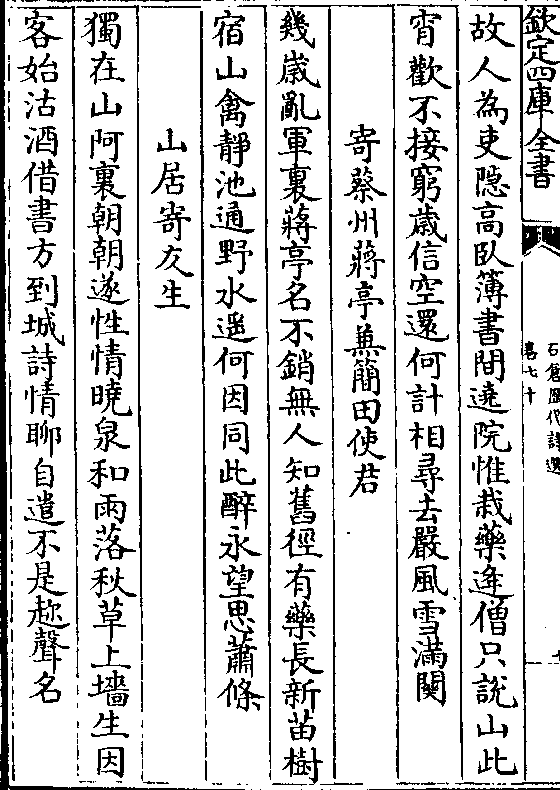 欽定四庫全書
石倉歷代詩選
卷七十
故人為吏隠高臥簿書間遶院惟栽藥逢僧只説山此
宵歡不接窮歳信空還何計相尋去嚴風雪滿關
寄蔡州蔣亭兼簡田使君
幾歳亂軍裏蔣亭名不銷無人知舊徑有藥長新苗樹
宿山禽靜池通野水遥何因同此醉永望思蕭條
山居寄友生
獨在山阿裏朝朝遂性情曉泉和雨落秋草上墻生因
客始沽酒借書方到城詩情聊自遣不是趂聲名